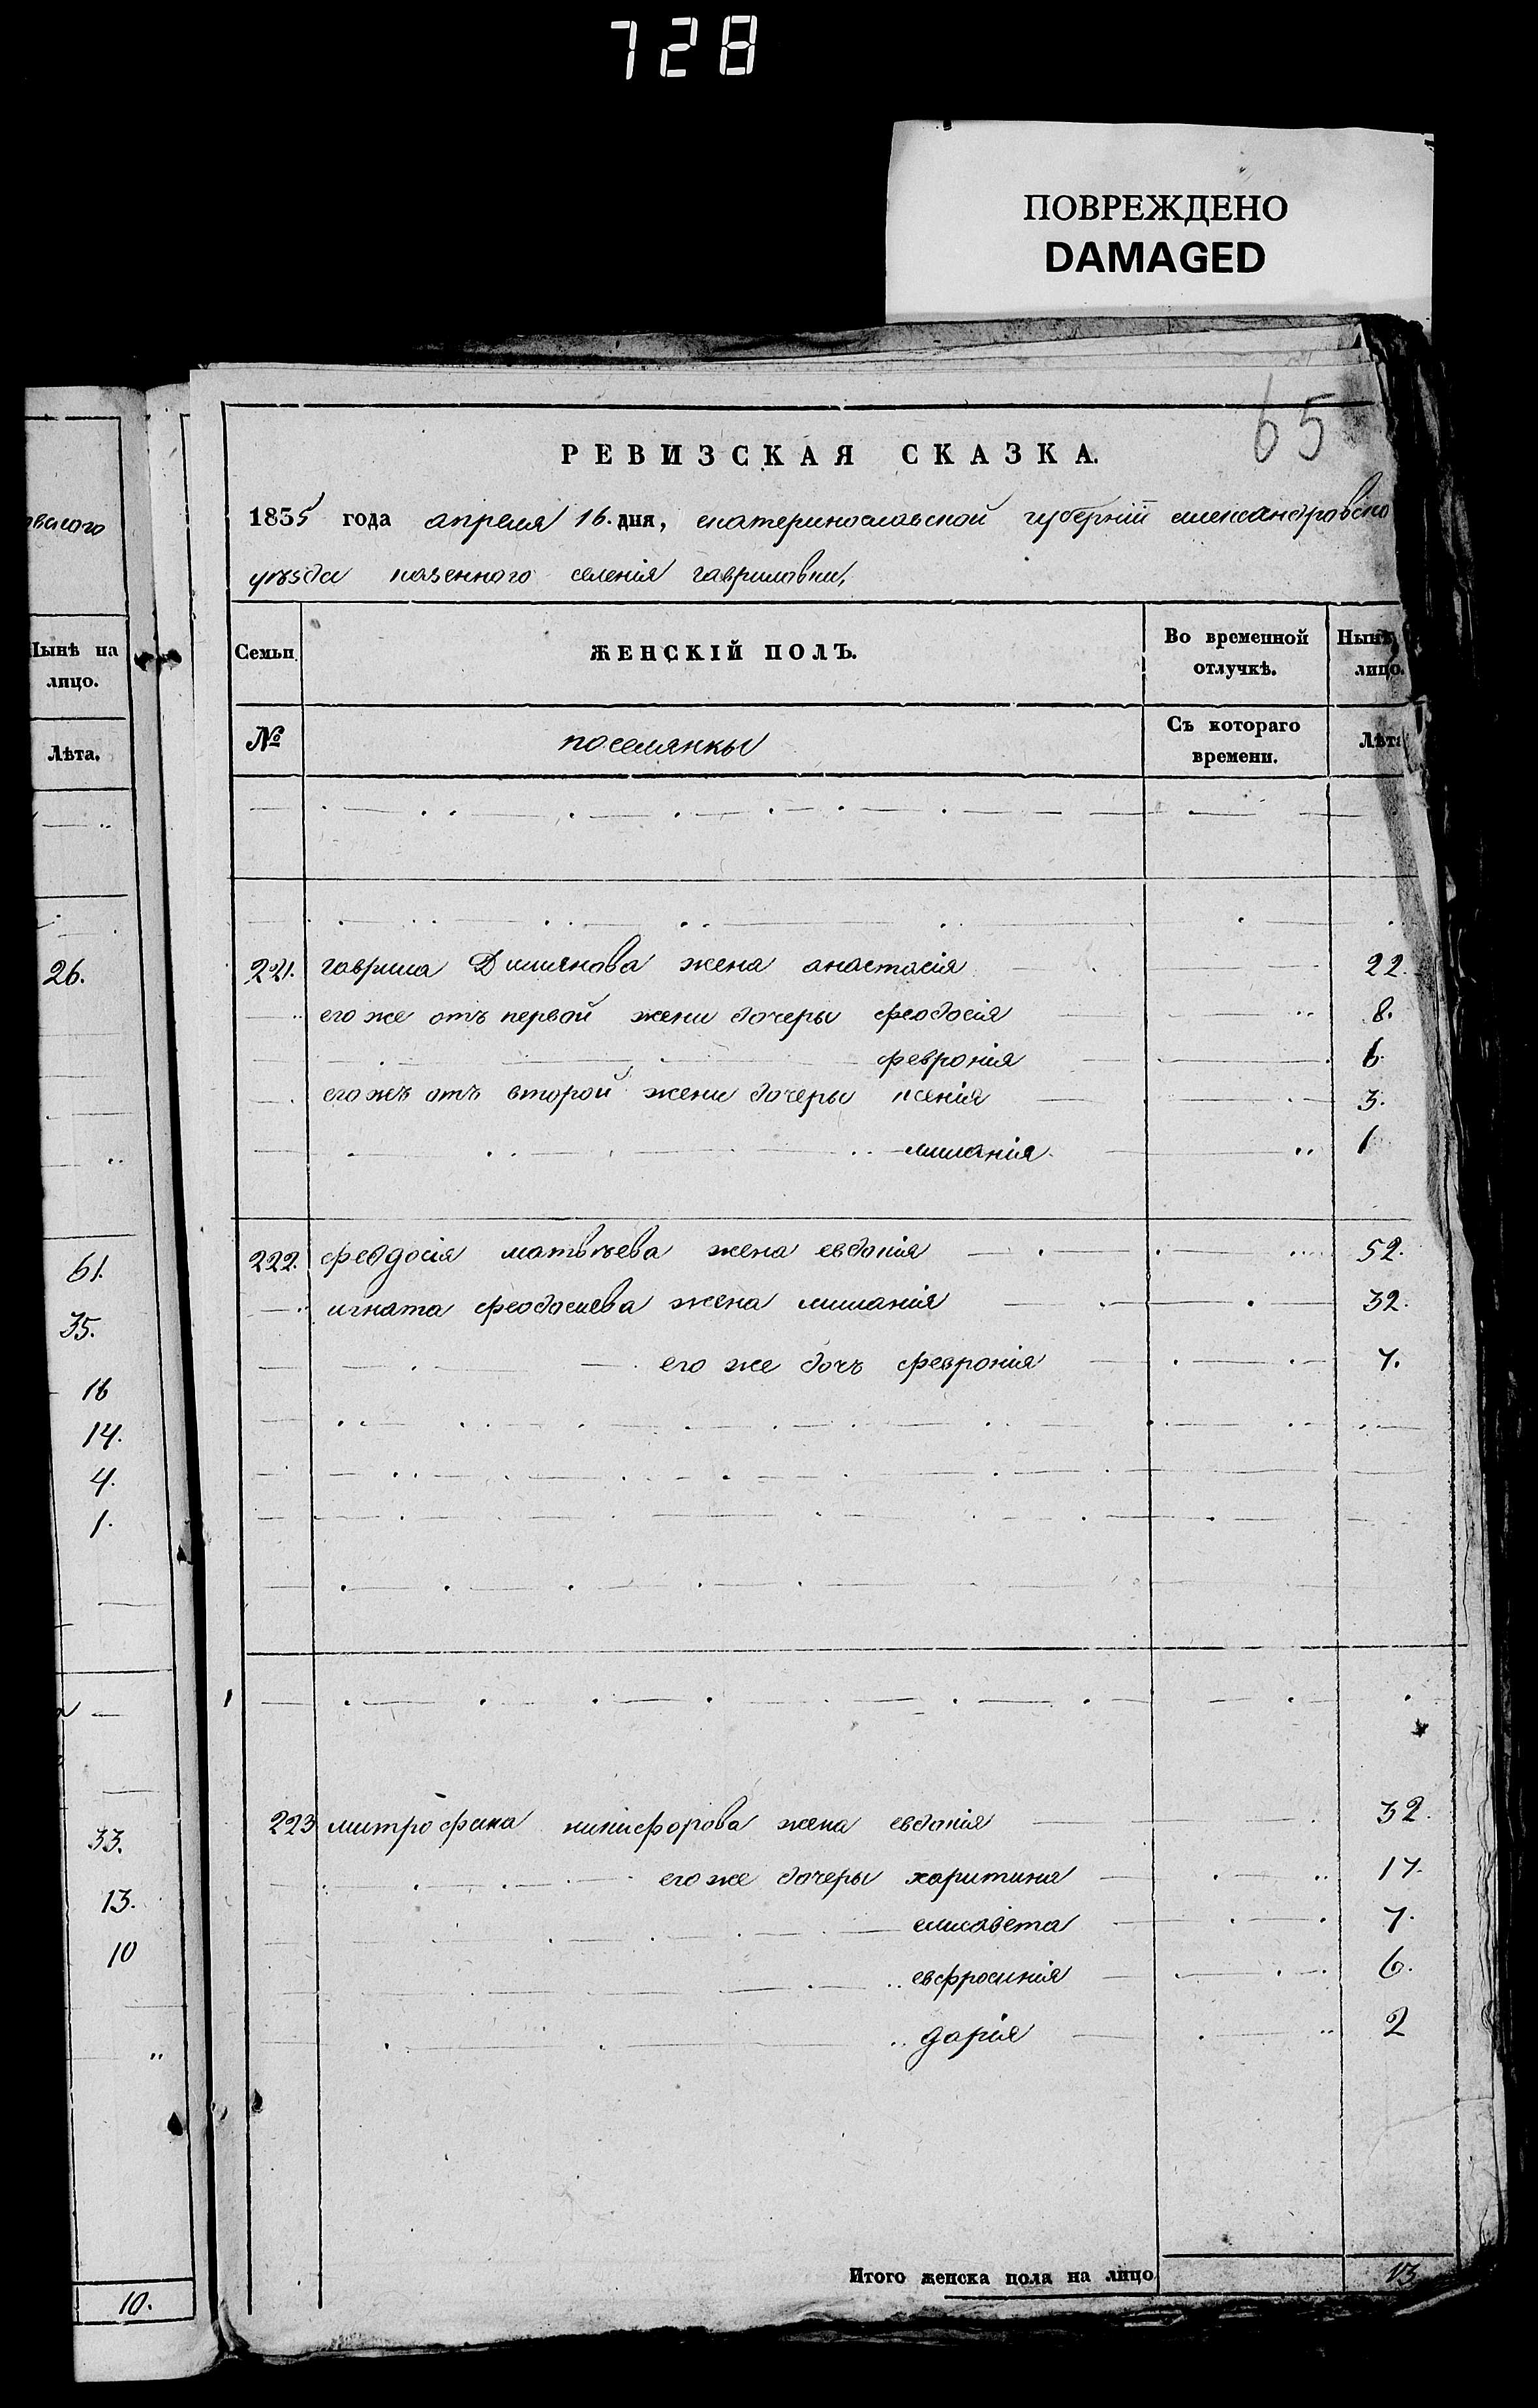 728
ПОВРЕЖДЕНО
DAMAGED
65
РЕВИЗСКАЯ СКАЗКА.
1835 года апреля 16. дня, екатеринославской губерніи александровско
уѣзда казенного селенія гавриловки,
Нынѣ на
лицо.
Лѣта.
Семьи
ЖЕНСКІЙ ПОЛЪ.
Во временной
отлучкѣ.
Нынѣ
лицо.
№
поселянкы
Съ котораго
времени.
Лѣта
26.
61.
35.
16
14.
4.
1.
33.
13.
10
10.
221. гаврила Димиянова жена анастасія 22.
его же отъ первой жени дочеры феодосія 8.
февронія 6.
его жъ отъ второй жени дочеры ксенія 3.
миланія 1
222. феодосія матвѣева жена евдокія 52.
игната феодосиева жена миланія 32.
его же дочъ февронія 7.
223 митрофана никифорова жена евдокія 32.
его же дочеры харитина 17.
елисавета 7.
евфросинія 6.
дарія 2
Итого женска пола на лицо 13